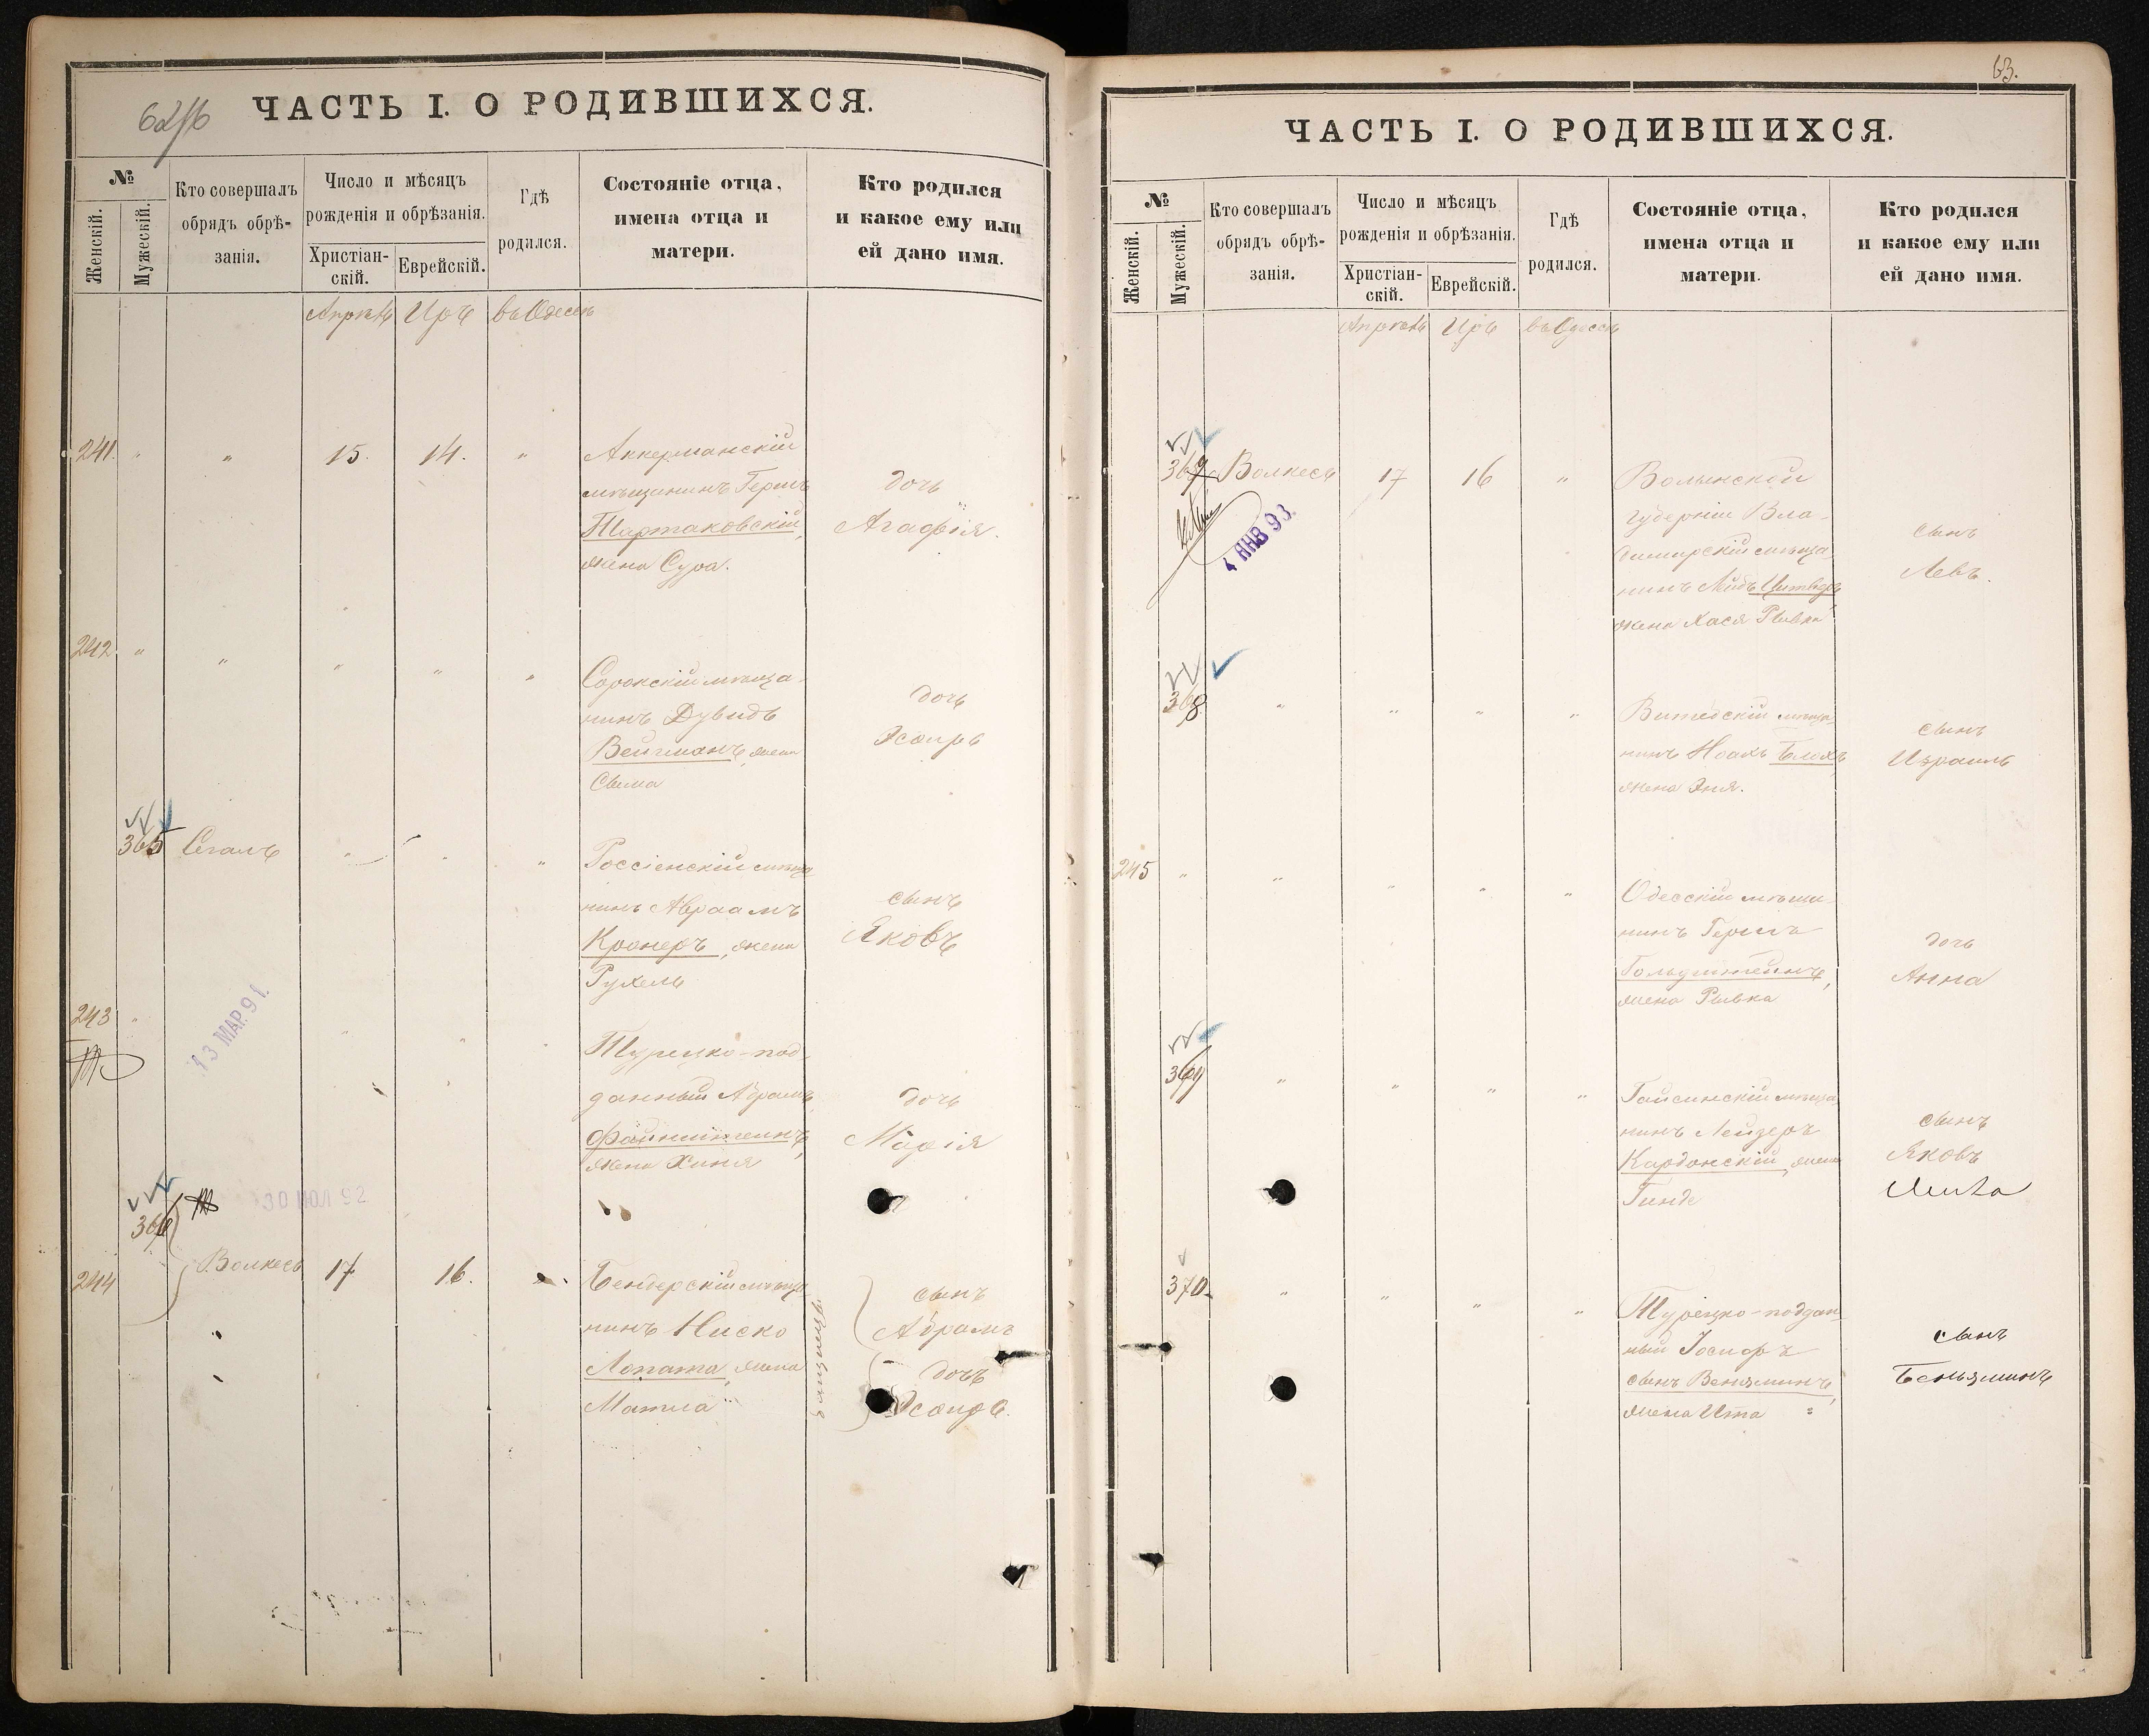 62/б
ЧАСТЬ I. О РОДИВШИХСЯ.
№
Женскій.
Мужескій.
Кто совершалъ
обрядъ обрѣ-
занія.
Число и мѣсяцъ
рожденія и обрѣзанія.
Христіан-
скій.
Еврейскій.
Гдѣ
родился.
Состояніе отца,
имена отца и
матери.
Кто родился
и какое ему или
ей дано имя.
Апрель Иръ въ Одессѣ
241. " " 15. 14. " Аккерманскій
мѣщанинъ Гершъ
Тартаковскій,
жена Сура.
дочь
Агафія.
242. " " " " " Сорокскій мѣща-
нинъ Дувидъ
Вейсманъ, жена
Сыма
дочь
Эсѳирь
365 Сегалъ " " " Россіенскій мѣща
нинъ Авраамъ
Кронеръ, жена
Рухель
сынъ
Яковъ
13 МАР. 91.
243 " " " " Турецко-под
данный Абрамъ
Файнштейнъ,
жена Хиня
дочь
Марія
30 ИЮЛ 92
366
244 Волкесъ 17 16. " Бендерскій мѣща
нинъ Хиско
Лопата, жена
Матла
сынъ
Абрамъ
дочь
Эсѳирь.
63.
ЧАСТЬ I. О РОДИВШИХСЯ.
№
Женскій.
Мужескій.
Кто совершалъ
обрядъ обрѣ-
занія.
Число и мѣсяцъ
рожденія и обрѣзанія.
Христіан-
скій.
Еврейскій.
Гдѣ
родился.
Состояніе отца,
имена отца и
матери.
Кто родился
и какое ему или
ей дано имя.
Апрель Иръ въ Одессѣ
367 Волкесъ 17 16 " Волынской
губерніи Вла-
димирскій мѣща
нинъ
жена Хася Рывка
сынъ
Левъ.
4 ЯНВ 93.
368. " " " " Витебскій мѣща-
нинъ Ноахъ Блохъ,
жена Эня.
сынъ
Израиль
245 " " " " " Одесскій мѣща-
нинъ Гершъ
Гольдштейнъ,
жена Рывка
дочь
Анна
369 " " " " Гайсинскій мѣща
нинъ Лейзеръ
Кардонскій, жена
Гинде
сынъ
Яковъ
370. " " " " Турецко-поддан
ный Іосифъ
сынъ Веніаминъ,
жена Ита
сынъ
Беньяминъ